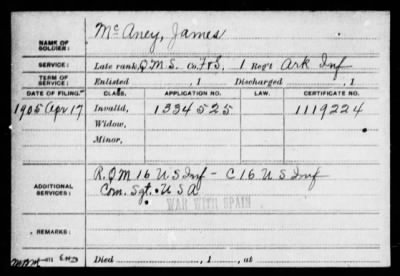 NAME OF SOLDIER: McAney, James
SERVICE: Late rank, Q.M.S. Co. F&S, 1 Reg't Ark Inf
TERM OF SERVICE: Enlisted , 1 Discharged , 1
DATE OF FILING. CLASS. APPLICATION NO. LAW. CERTIFICATE NO.
1905 Apr 17 Invalid, 1334525 1119224
Widow,
Minor,
ADDITIONAL SERVICES: R.Q M 16 U S Inf - C 16 U S Inf
Com. Sgt. U S A
WAR WITH SPAIN
REMARKS:
Died , 1 , at